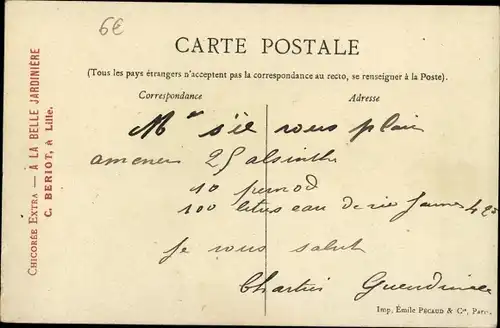 6€
CARTE POSTALE
(Tous les pays étrangers n'acceptent pas la correspondance au recto, se renseigner à la Poste).
Correspondance
Adresse
CHICORÉE EXTRA — A LA BELLE JARDINIÈRE
C. BERIOT, à Lille.
Mr s'il vous plai
amener 25 absinthe
10 pernod
100 litres eau de vie jaune 42
je vous salut
Chartier
Imp. Émile PECAUD & Cie, Paris.